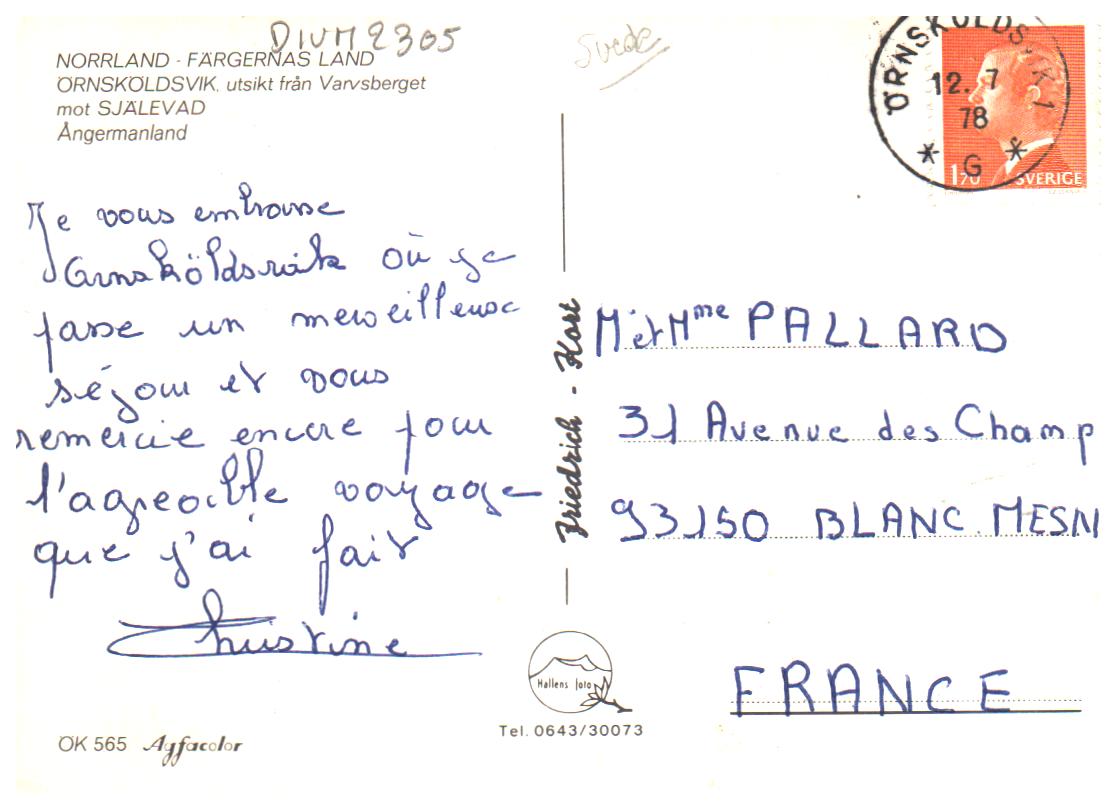 DIVM2305
NORRLAND - FÄRGERNAS LAND
ÖRNSKÖLDSVIK, utsikt från Varvsberget
mot SJÄLEVAD
Ångermanland
Svede
ÖRNSKÖLDSVIK 1
12. 7
78
* G *
1,70 SVERIGE
Je vous embrasse
d'Örnsköldsvik où ge
passe un merveilleuse
séjour et vous
remercie encore pour
l'agreable voyage
que j'ai fait
Christine
Friedrich - Kort
M et Mme PALLARD
31 Avenue des Champ
93150 BLANC MESN
FRANCE
Hallens foto
Tel. 0643/30073
ÖK 565 Agfacolor